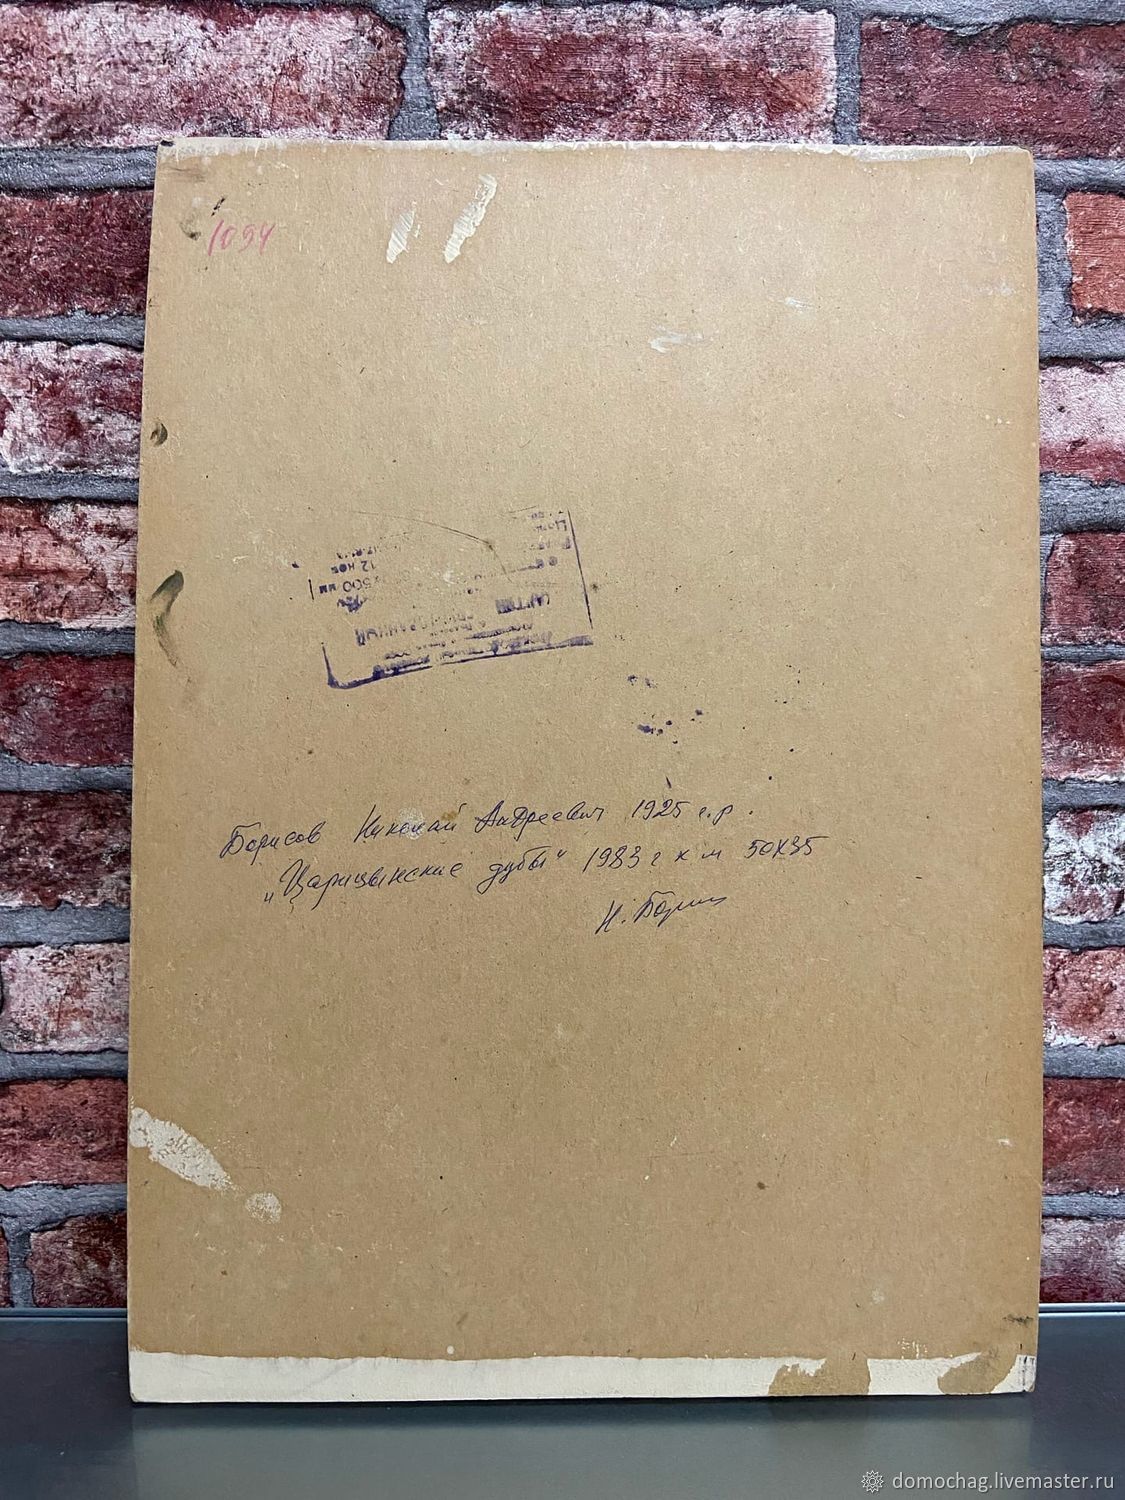 1094
500 мм
12 ноя
Борисов Николай Андреевич 1925 г.р.
„Царицынские дубы" 1983 г к м 50х35
Н. Борис
domochag.livemaster.ru